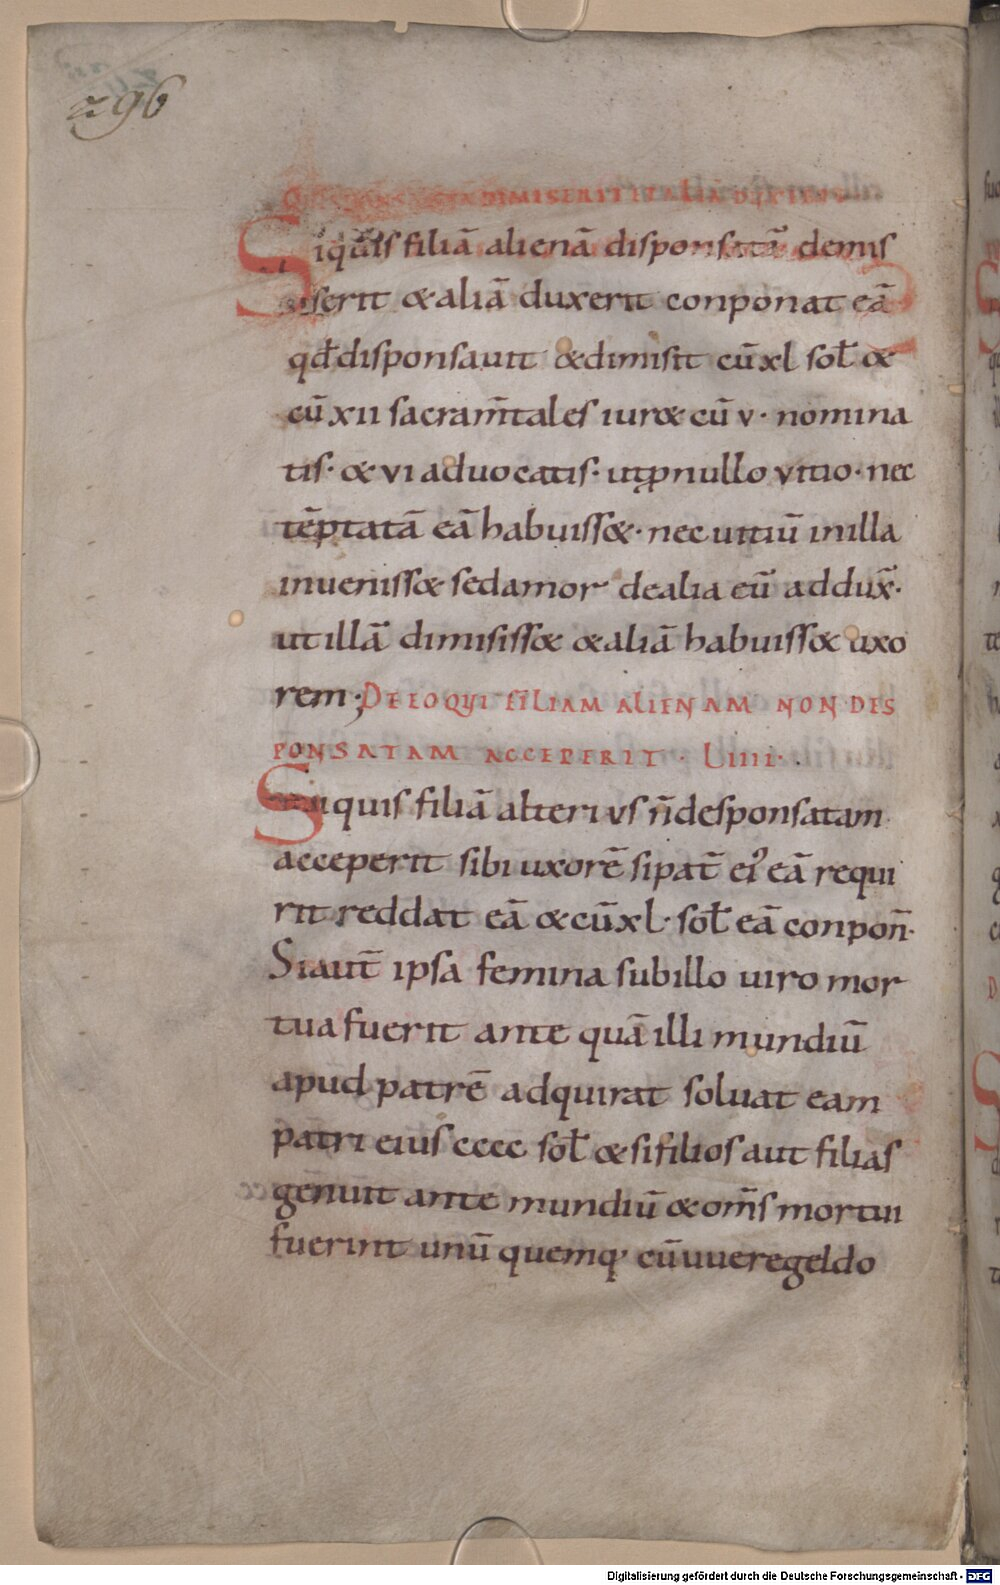 296
DIMISERIT ET ALIA DUXERIT
Siquis filiā alienā disponsatā demis
serit & aliā duxerit conponat eā
qđ disponsauit & dimisit cū xl sol̄ &
cū xii sacram̄tales iur& cū v· nomina
tis· & vi aduocatis· ut ꝑ nullo vitio· nec
tēptatā eā habuiss&· nec uitiū in illa
inueniss& sed amor de alia eū addux̄·
ut illā dimisiss& & aliā habuiss& uxo
rem; DE EO QUI FILIAM ALIENAM NON DES
PONSATAM ACCEPERIT · LIIII·
Siquis filiā alterius n̄ desponsatam
acceperit sibi uxorē si pat̄ ei' eā requi
rit reddat eā & cū xl· sol̄ eā conpon̄·
Si aut̄ ipsa femina sub illo uiro mor
tua fuerit ante quā illi mundiū
apud patrē adquirat soluat eam
patri eius cccc sol̄ & si filios aut filias
genuit ante mundiū & om̄s mortui
fuerint unū quemq· cū uueregeldo
Digitalisierung gefördert durch die Deutsche Forschungsgemeinschaft - DFG